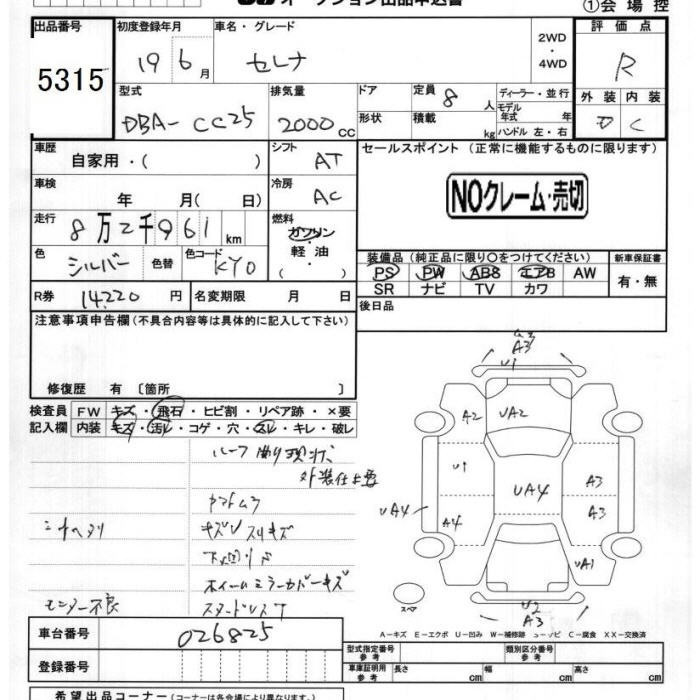 オークション出品申込書
①会場控
出品番号 初度登録年月 車名・グレード 評価点
5315 19 6月 セレナ 2WD・4WD R
型式 排気量 ドア 定員 8人 ディーラー・並行 外装 内装
DBA-CC25 2000CC 形状 積載 kg モデル年式 年 ハンドル 左・右 D C
車歴 自家用・( ) シフト AT セールスポイント (正常に機能するものに限ります)
車検 年 月( 日) 冷房 AC NOクレーム・売切
走行 8万2千961km 燃料 ガソリン 軽・油 ( )
色 シルバー 色替 色コード KY0 装備品(純正品に限り○をつけてください) 新車保証書
PS PW ABS エアB AW 有・無
SR ナビ TV カワ
R券 14220円 名変期限 月 日 後日品
注意事項申告欄(不具合内容等は具体的に記入して下さい)
修復歴 有 〔箇所 〕
検査員 FW キズ・飛石・ヒビ割・リペア跡・×要
記入欄 内装 キズ・汚レ・コゲ・穴・スレ・キレ・破レ
ルーフ曲り現状
外装仕上要
シートヘタリ
キズUスリキズ
下廻リ
ホイールミラーカバーキズ
モニター不良
スタッドレス
A3
U1
A2
UA2
U1
A3
UA4
UA4
A3
A4
UA1
スペア
U2
A3
A-キズ E-エクボ U-凹み W-補修跡 S-サビ C-腐食 XX-交換済
車台番号 026825 型式指定番号 参考 類別区分番号 参考
登録番号 車庫証明用 参考 長さ cm 幅 cm 高さ cm
希望出品コーナー(コーナーは各会場により異なります)